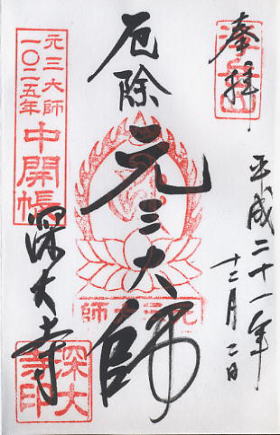 奉拝
浮岳山
平成二十一年
十二月二日
厄除
元三大師
元三大師
元三大師
一〇二五年
中開帳
深大寺
深大寺印